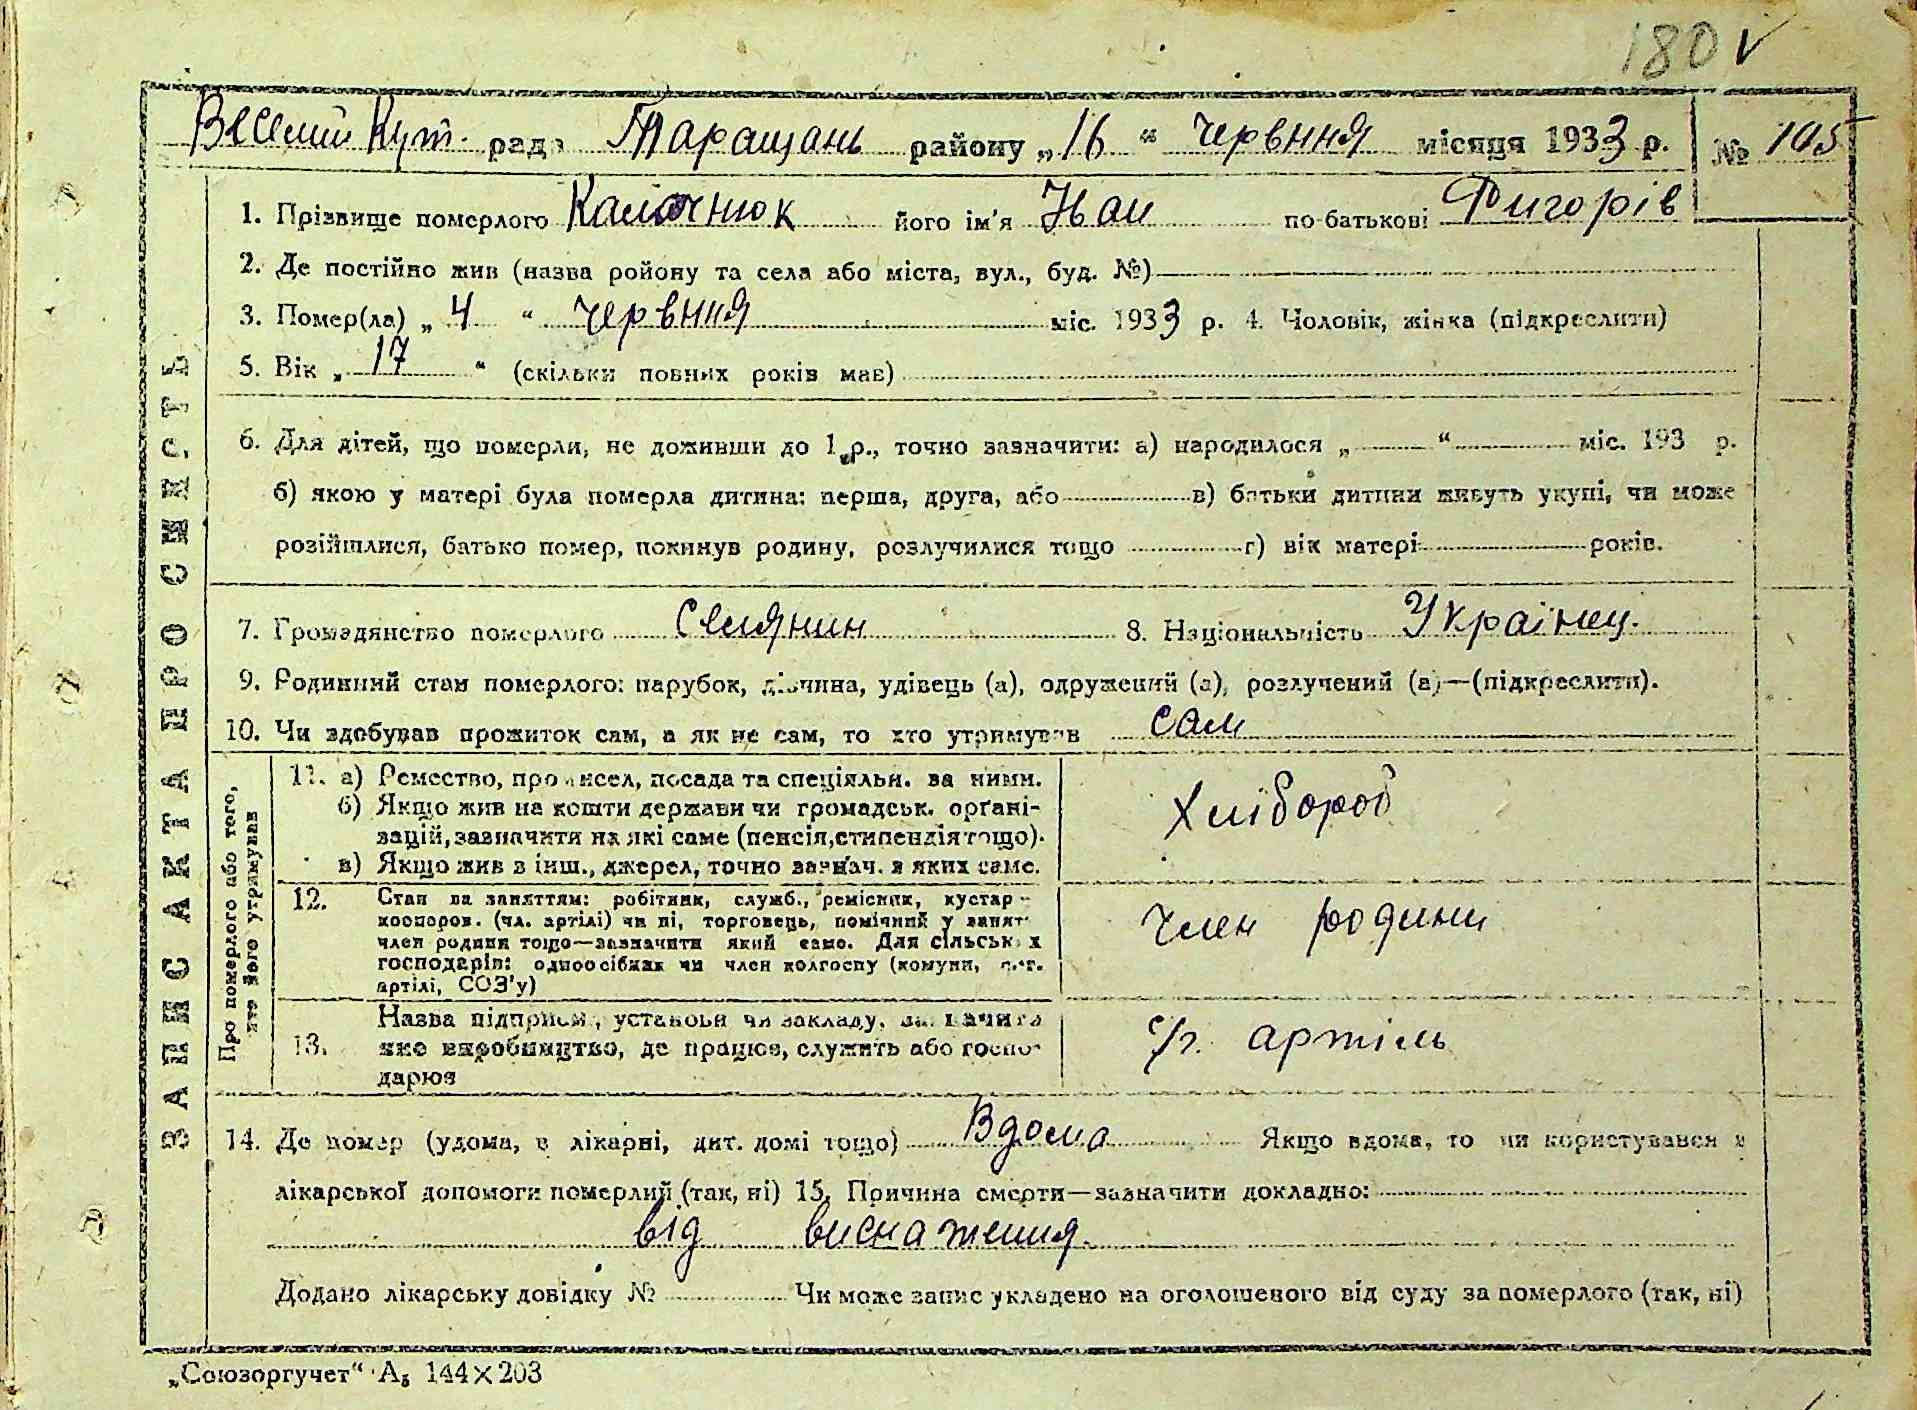 180 V
Веселий Кут. рада Таращань району „16 “ червння місяця 1933 р. № 105
ЗАПИС АКТА ПРО СМЕРТЬ
1. Прізвище померлого його ім'я Іван по-батькові Григорів
2. Де постійно жив (назва ройону та села або міста, вул., буд. №)
3. Помер(ла) „ 4 “ червння міс. 1933 р. 4. Чоловік, жінка (підкреслити)
5. Вік „ 17 “ (скільки повних років мав)
6. Для дітей, що померли, не доживши до 1 р., точно зазначити: а) народилося „ “ міс. 193 р.
б) якою у матері була померла дитина: перша, друга, або в) батьки дитини живуть укупі, чи може
розійшлися, батько помер, покинув родину, розлучилися тощо г) вік матері років.
7. Громадянство померлого Селянин 8. Національність Українец.
9. Родинний стан померлого: парубок, дівчина, удівець (а), одружений (а), розлучений (а)—(підкреслити).
10. Чи здобував прожиток сам, а як не сам, то хто утримував сам
Про померлого або того, хто його утримував
11. а) Ремество, промисел, посада та спеціяльн. за ними.
б) Якщо жив на кошти держави чи громадськ. орґані-
зацій, зазначити на які саме (пенсія, стипендія тощо).
в) Якщо жив з інш., джерел, точно зазнач. з яких саме.
Хлібороб
12. Стан за заняттям: робітник, служб., ремісник, кустар-
кооперов. (чл. артілі) чи ні, торговець, помічний у занят.
член родини тощо—зазначити який саме. Для сільських
господарів: одноосібник чи член колгоспу (комуни, с.-г.
артілі, СОЗ'у)
Член родини
13. Назва підприєм., установи чи закладу, зазначити
яке виробництво, де працює, служить або госпо-
дарює
с/г. артіль
14. Де помер (удома, в лікарні, дит. домі тощо) Вдома Якщо вдома, то чи користувався з
лікарської допомоги померлий (так, ні) 15. Причина смерти—зазначити докладно:
від виснаження.
Додано лікарську довідку № Чи може запис укладено на оголошеного від суду за померлого (так, ні)
„Союзоргучет“ А₅ 144×203